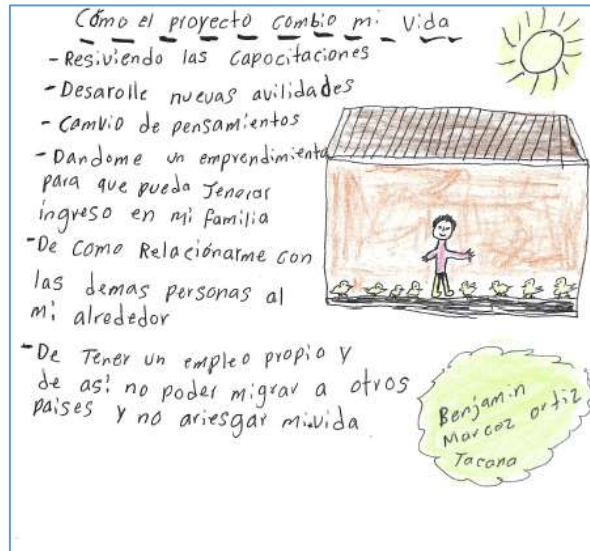 Cómo el proyecto combio mi vida
- Resiviendo las capocitaciones
- Desarolle nuevas avilidades
- Camvio de pensamientos
- Dandome un emprendimiento
para que pueda Jenerar
ingreso en mi familia
- De como Relaciónarme con
las demas personas al
mi alrededor
- De Tener un empleo propio y
de así no poder migrar a otros
paises y no ariesgar mi vida
Benjamin
Marcoz ortiz
Tacana